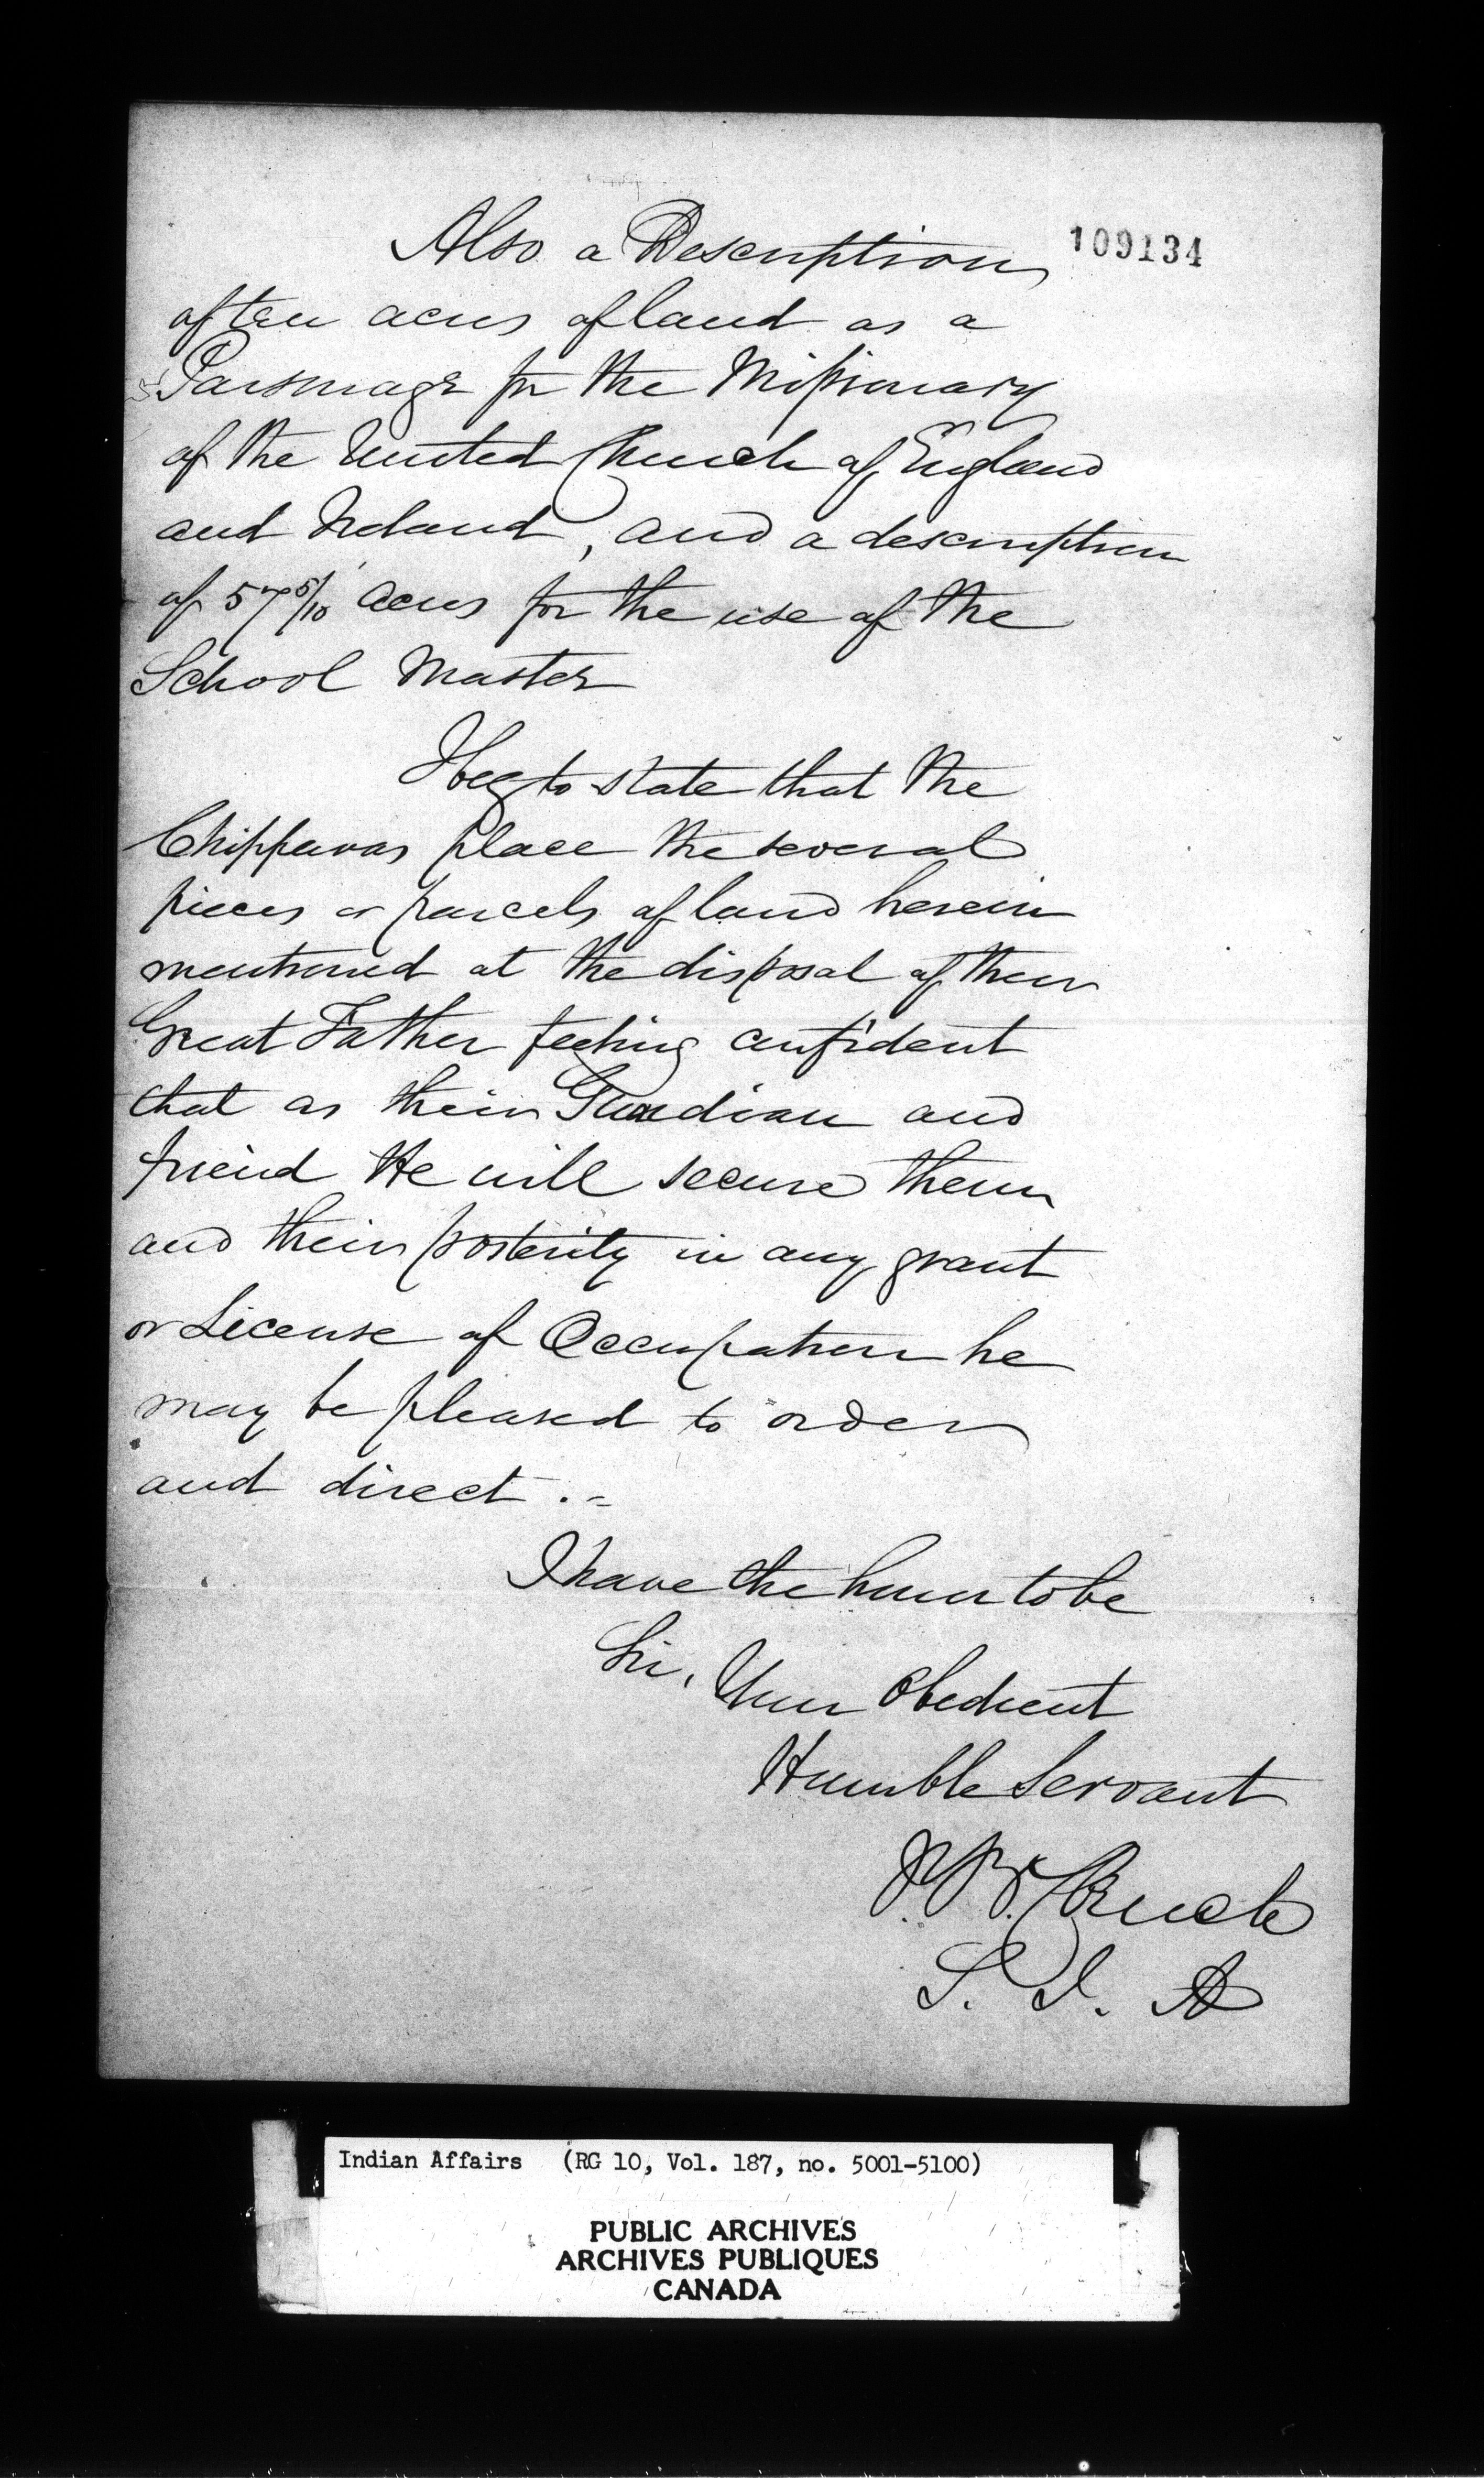 109134
Also a Description
of ten acres of land as a
Parsonage for the Missionary
of the United Church of England
and Ireland, and a description
of 57 5/10 acres for the use of the
School Master
I beg to state that the
Chippewas place the several
pieces or parcels of land herein
mentioned at the disposal of their
Great Father feeling confident
that as their Guardian and
friend He will secure them
and their posterity in any grant
or License of Occupation he
may be pleased to order
and direct .=
I have the honor to be
Sir,
Your Obedient
Humble Servant
J.B. Clench
S. I. A
Indian Affairs (RG 10, Vol. 187, no. 5001-5100)
PUBLIC ARCHIVES
ARCHIVES PUBLIQUES
CANADA